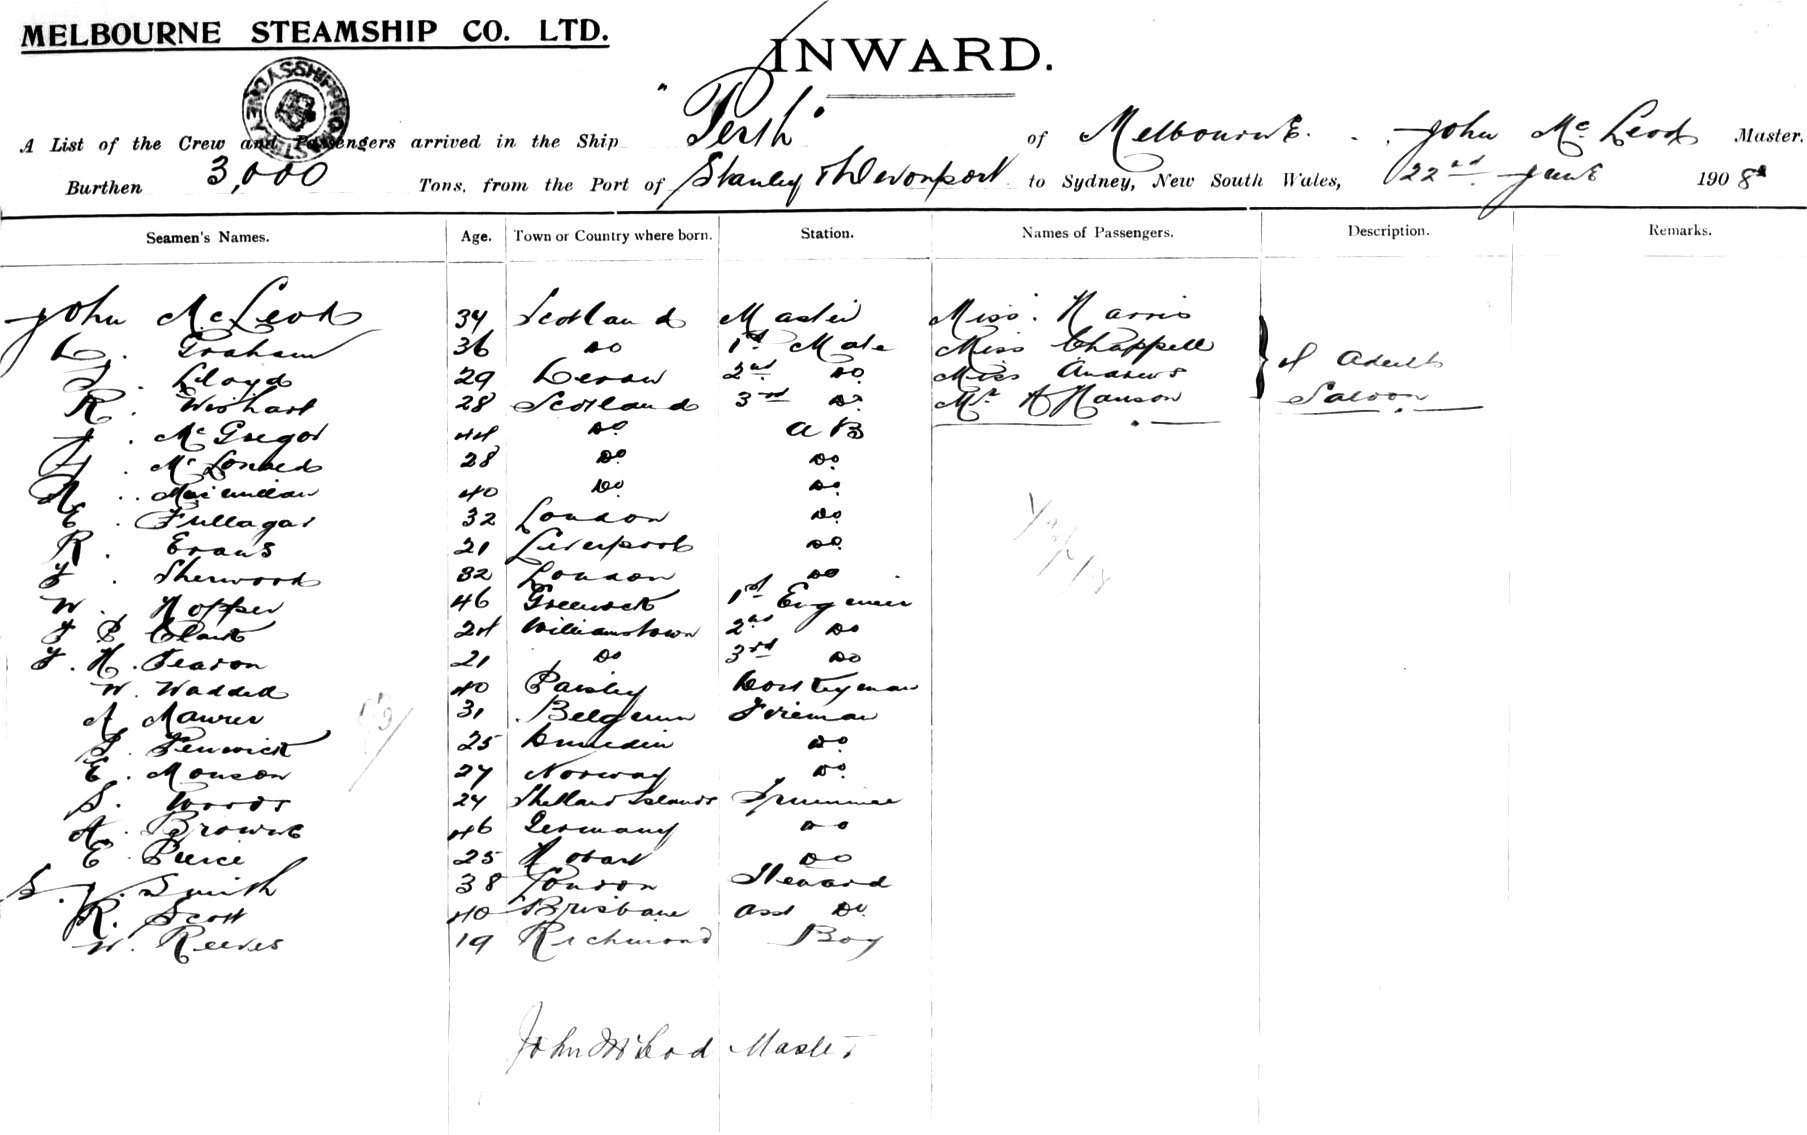 MELBOURNE STEAMSHIP CO. LTD.
INWARD.
A List of the Crew and Passengers arrived in the Ship "Perth" of Melbourne. John McLeod Master.
Burthen 3,000 Tons, from the Port of Stanley & Devonport to Sydney, New South Wales, 22nd June 1908
Seamen's Names. Age. Town or Country where born. Station. Names of Passengers. Description. Remarks.
John McLeod 34 Scotland Master Miss Harris
D. Graham 36 Do 1st Mate Miss Chappell
Lloyd 29 Devon 2nd Do Miss Andrews 4 Adults
R. Wishart 28 Scotland 3rd Do Mr A Hanson Saloon
McGregor 44 Do A B
McDonald 28 Do Do
A. Macmillan 40 Do Do
E. Fullagar 32 London Do
R. Evans 21 Liverpool Do
J. Sherwood 32 London Do
W. Hopper 46 Greenock 1st Engineer
J P Clark 24 Williamstown 2nd Do
J. H. Fearon 21 Do 3rd Do
W. Waddell 40 Paisley Donkeyman
A Maurer 31 Belgium Fireman
Fenwick 25 Dunedin Do
E. Monson 27 Norway Do
S. Woods 24 Shetland Islands Trimmer
A. Browne 46 Germany Do
E. Pierce 25 Hobart Do
S. J. Smith 38 London Steward
R. Scott 40 Brisbane Asst Do
W. Reeves 19 Richmond Boy
John McLeod Master